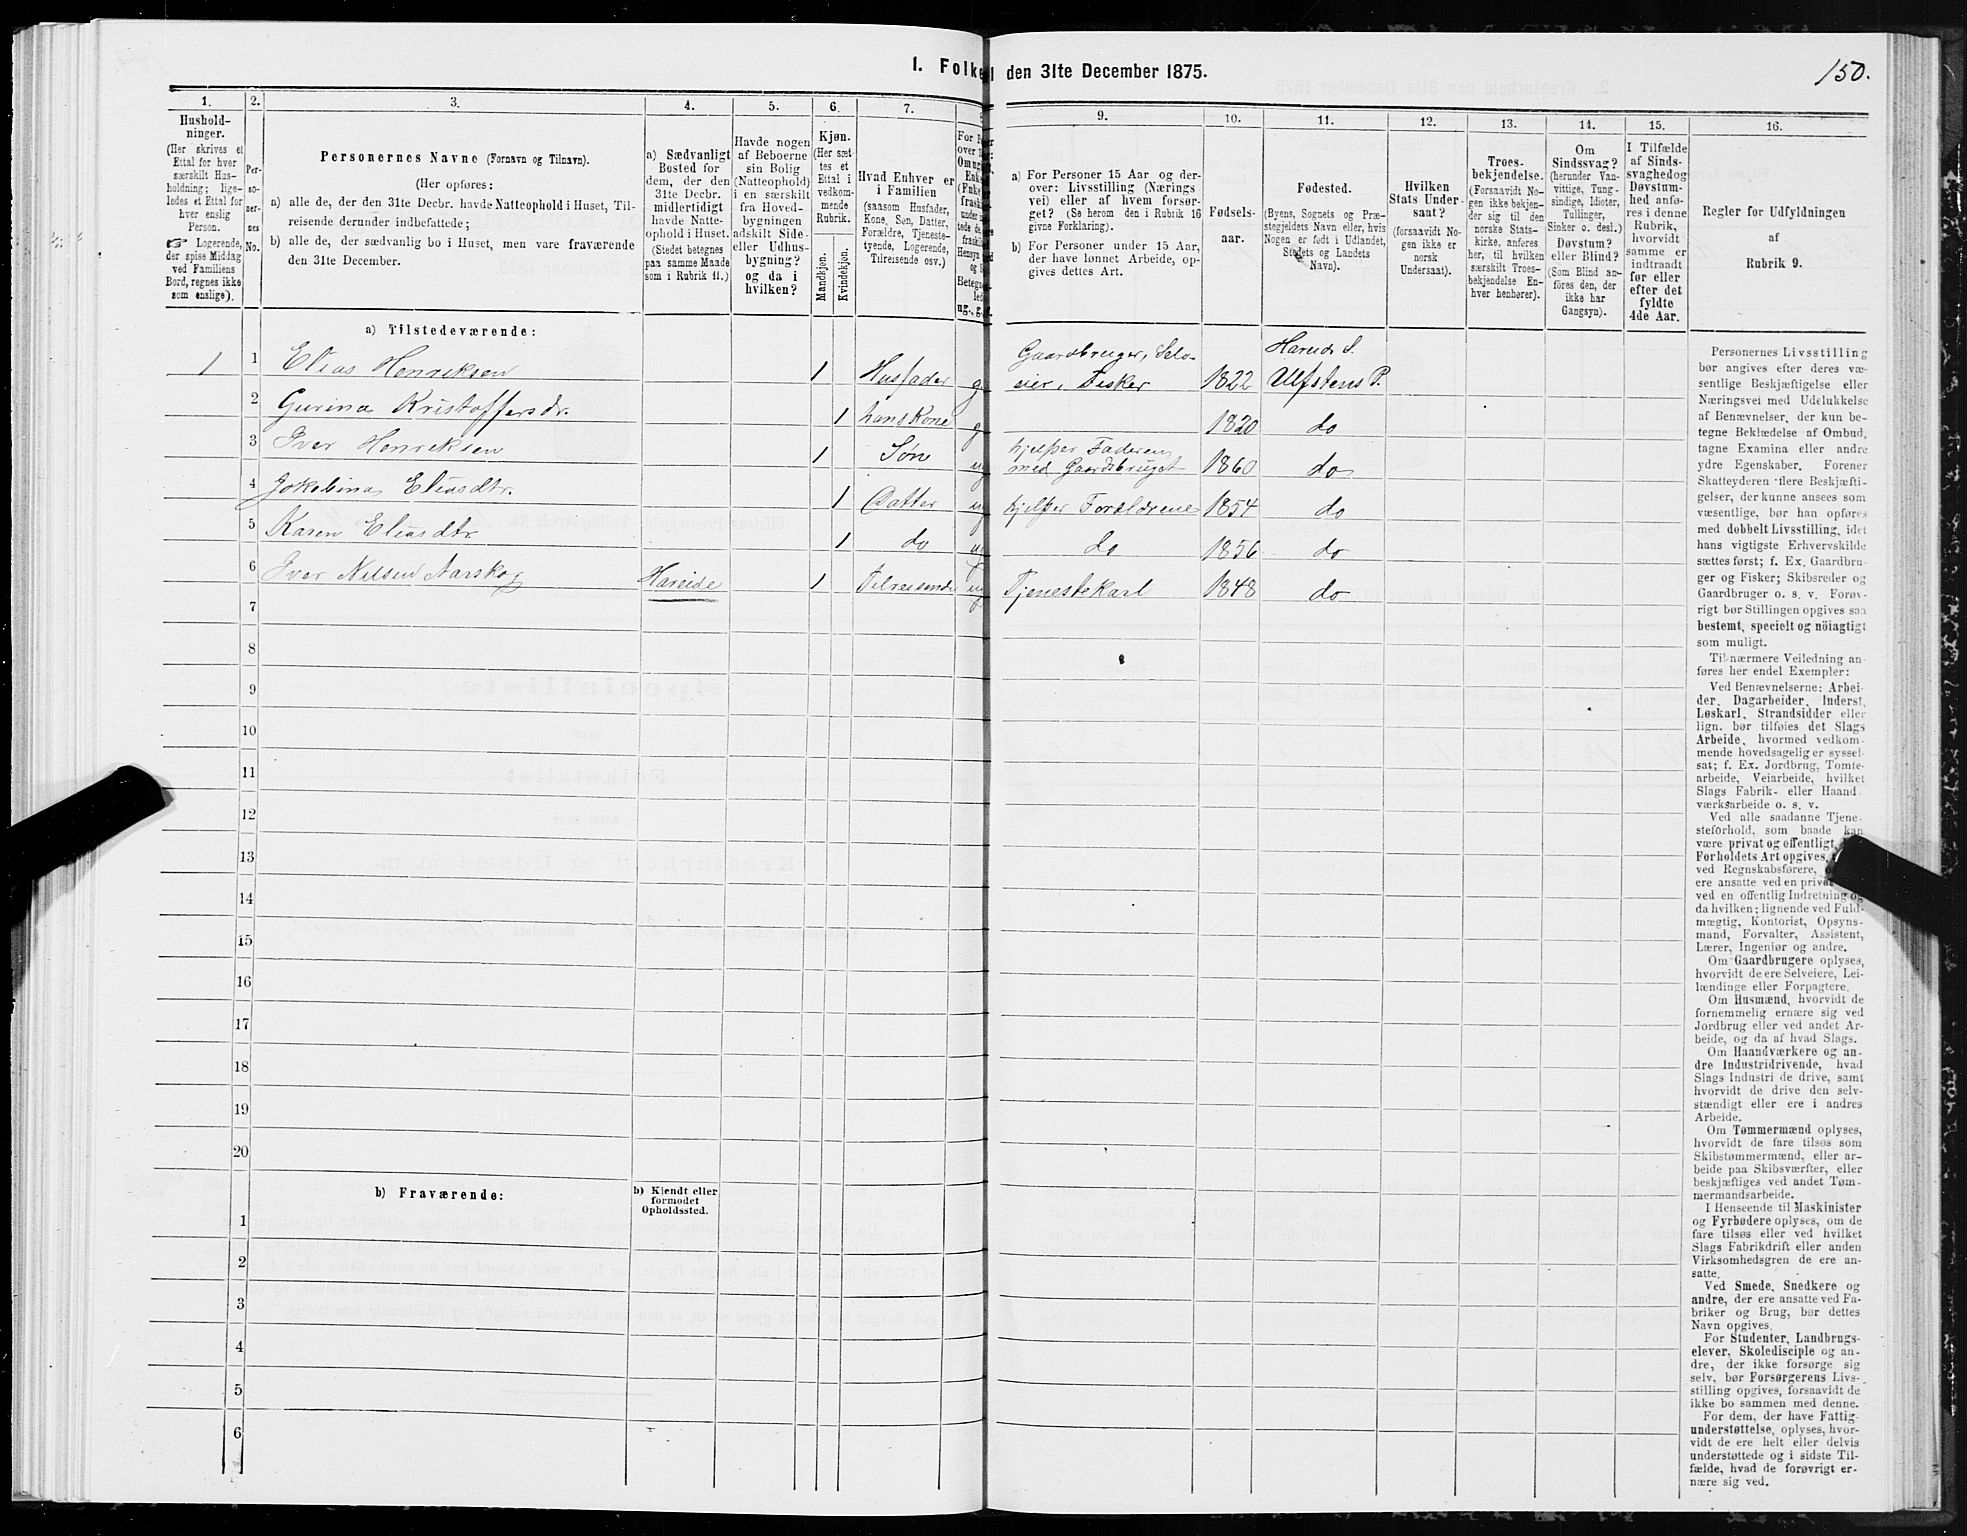 150.
I. Folke
den 31te December 1875.
1.
Hushold-
ninger.
(Her skrives et
Ettal for hver
særskilt Hus-
holdning; lige-
ledes et Ettal for
hver enslig
Person.
☞ Logerende,
der spise Middag
ved Familiens
Bord, regnes ikke
som enslige).
2.
Per-
so-
ner-
nes
No.
3.
Personernes Navne (Fornavn og Tilnavn).
(Her opføres:
a) alle de, der den 31te Decbr. havde Natteophold i Huset, Til-
reisende derunder indbefattede;
b) alle de, der sædvanlig bo i Huset, men vare fraværende
den 31te December.
4.
a) Sædvanligt
Bosted for
dem, der den
31te Decbr.
midlertidigt
havde Natte-
ophold i Huset.
(Stedet betegnes
paa samme Maade
som i Rubrik 11.)
5.
Havde nogen
af Beboerne
sin Bolig
(Natteophold)
i en særskilt
fra Hoved-
bygningen
adskilt Side-
eller Udhus-
bygning?
og da i
hvilken?
6.
Kjøn.
(Her sæt-
tes et
Ettal i
vedkom-
mende
Rubrik.
Mandkjøn.
Kvindekjøn.
7.
Hvad Enhver er
i Familien
(saasom Husfader,
Kone, Søn, Datter,
Forældre, Tjeneste-
tyende, Logerende,
Tilreisende osv.)
9.
a) For Personer 15 Aar og der-
over: Livsstilling (Nærings
vei) eller af hvem forsør-
get? (Se herom den i Rubrik 16
givne Forklaring).
b) For Personer under 15 Aar,
der have lønnet Arbeide, op-
gives dettes Art.
10.
Fødsels-
aar.
11.
Fødested.
(Byens, Sognets og Præ-
stegjeldets Navn eller, hvis
Nogen er født i Udlandet,
Stedets og Landets
Navn).
12.
Hvilken
Stats Under-
saat?
(forsaavidt No-
gen ikke er
norsk
Undersaat).
13.
Troes-
bekjendelse.
(Forsaavidt No-
gen ikke bekjen-
der sig til den
norske Stats-
kirke, anføres
her, til hvilken
særskilt Troes-
bekjendelse En-
hver henhører).
14.
Om
Sindssvag?
(herunder Van-
vittige, Tung-
sindige, Idioter,
Tullinger,
Sinker o. desl.)
Døvstum?
eller Blind?
(Som Blind an-
føres den, der
ikke har
Gangsyn).
15.
I Tilfælde
af Sinds-
svaghed og
Døvstum-
hed anfø-
res i denne
Rubrik,
hvorvidt
samme er
indtraadt
før eller
efter det
fyldte
4de Aar.
16.
Regler for Udfyldningen
af
Rubrik 9.
a) Tilstedeværende:
1 1 Elias Henriksen 1 Husfader g. Gaardbruger, Selv-
eier, Fisker 1822 Hareids S.
Ulfstens P.
2 Gurina Kristoffersdr. 1 hans Kone g 1820 do
3 Iver Henriksen 1 Søn ug hjelper Faderen
med Gaardsbruget 1860 do
4 Jakobina Eliasdtr. 1 Datter ug hjelper Forældrene 1854 do
5 Karen Eliasdtr 1 do ug do 1856 do
6 Iver Nilsen Aarskog Hareide 1 Tilreisende ug Tjenestekarl 1848 do
7
8
9
10
11
12
13
14
15
16
17
18
19
20
b) Fraværende:
b) Kjendt eller
formodet
Opholdssted.
1
2
3
4
5
6
Personernes Livsstilling
bør angives efter deres væ-
sentlige Beskjæftigelse eller
Næringsvei med Udelukkelse
af Benævnelser, der kun be-
tegne Beklædelse af Ombud,
tagne Examina eller andre
ydre Egenskaber. Forener
Skatteyderen flere Beskjæfti-
gelser, der kunne ansees som
væsentlige, bør han opføres
med dobbelt Livsstilling, idet
hans vigtigste Erhvervskilde
sættes først; f. Ex. Gaardbru-
ger og Fisker; Skibsreder og
Gaardbruger o. s. v. Forøv-
rigt bør Stillingen opgives saa
bestemt, specielt og nöiagtigt
som muligt.
Til nærmere Veiledning an-
føres her endel Exempler:
Ved Benævnelserne: Arbei-
der, Dagarbeider, Inderst,
Løskarl, Strandsidder eller
lign. bør tilføies det Slags
Arbeide, hvormed vedkom-
mende hovedsagelig er syssel-
sat; f. Ex. Jordbrug, Tomte-
arbeide, Veiarbeide, hvilket
Slags Fabrik- eller Haand-
værksarbeide o. s. v.
Ved alle saadanne Tjene-
steforhold, som baade kan
være privat og offentligt,
Forholdets Art opgives,
ved Regnskabsførere,
ere ansatte ved en privat
ved en offentlig Indretning og
da hvilken; lignende ved Fuld-
mægtig, Kontorist, Opsyns-
mand, Forvalter, Assistent,
Lærer, Ingeniør og andre.
Om Gaardbrugere oplyses,
hvorvidt de ere Selveiere, Lei-
lændinge eller Forpagtere.
Om Husmænd, hvorvidt de
fornemmelig ernære sig ved
Jordbrug eller ved andet Ar-
beide, og da af hvad Slags.
Om Haandværkere og an-
dre Industridrivende, hvad
Slags Industri de drive, samt
hvorvidt de drive den selv-
stændigt eller ere i andres
Arbeide.
Om Tømmermænd oplyses,
hvorvidt de fare tilsøs som
Skibstømmermænd, eller ar-
beide paa Skibsværfter, eller
beskjæftiges ved andet Tøm-
mermandsarbeide.
I Henseende til Maskinister
og Fyrbødere oplyses, om de
fare tilsøs eller ved hvilket
Slags Fabrikdrift eller anden
Virksomhedsgren de ere an-
satte.
Ved Smede, Snedkere og
andre, der ere ansatte ved Fa-
briker og Brug, bør dettes
Navn opgives.
For Studenter, Landbrugs-
elever, Skoledisciple og an-
dre, der ikke forsørge sig
selv, bør Forsørgerens Livs-
stilling opgives, forsaavidt de
ikke bo sammen med denne.
For dem, der have Fattig-
understøttelse, oplyses, hvor-
vidt de ere helt eller delvis
understøttede og i sidste Til-
fælde, hvad de forøvrigt er-
nære sig ved.